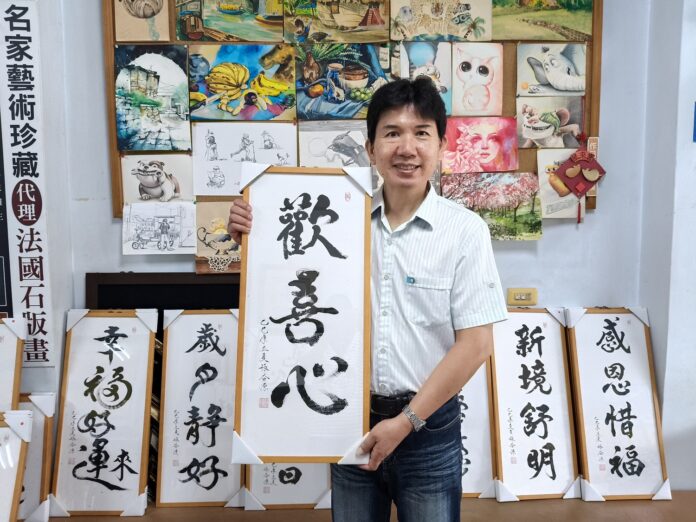 名家藝術珍藏
代理法國石版畫
幸福好運來
歲月靜好
歡喜心
日
新境舒明
感恩惜福